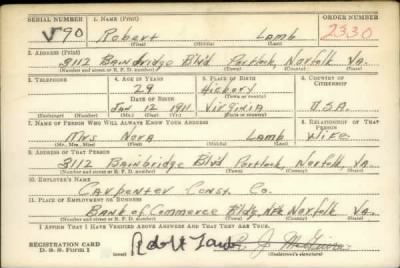 SERIAL NUMBER 1. NAME (Print) ORDER NUMBER
V90 Robert Lamb 2330
(First) (Middle) (Last)
2. ADDRESS (Print)
3112 Bainbridge Blvd Portlock, Norfolk Va.
(Number and street or R. F. D. number) (Town) (County) (State)
3. TELEPHONE 4. AGE IN YEARS 5. PLACE OF BIRTH 6. COUNTRY OF CITIZENSHIP
29 Hickory
DATE OF BIRTH (Town or county)
Jan 12 1911 Virginia U.S.A.
(Exchange) (Number) (Mo.) (Day) (Yr.) (State or country)
7. NAME OF PERSON WHO WILL ALWAYS KNOW YOUR ADDRESS 8. RELATIONSHIP OF THAT PERSON
Mrs Nora Lamb Wife
(Mr., Mrs., Miss) (First) (Middle) (Last)
9. ADDRESS OF THAT PERSON
3112 Bainbridge Blvd Portlock, Norfolk Va.
(Number and street or R. F. D. number) (Town) (County) (State)
10. EMPLOYER'S NAME
Carpenter Const. Co.
11. PLACE OF EMPLOYMENT OR BUSINESS
Bank of Commerce Bldg Norfolk Va.
(Number and street or R. F. D. number) (Town) (County) (State)
I AFFIRM THAT I HAVE VERIFIED ABOVE ANSWERS AND THAT THEY ARE TRUE.
REGISTRATION CARD
D. S. S. Form 1 Robert Lamb